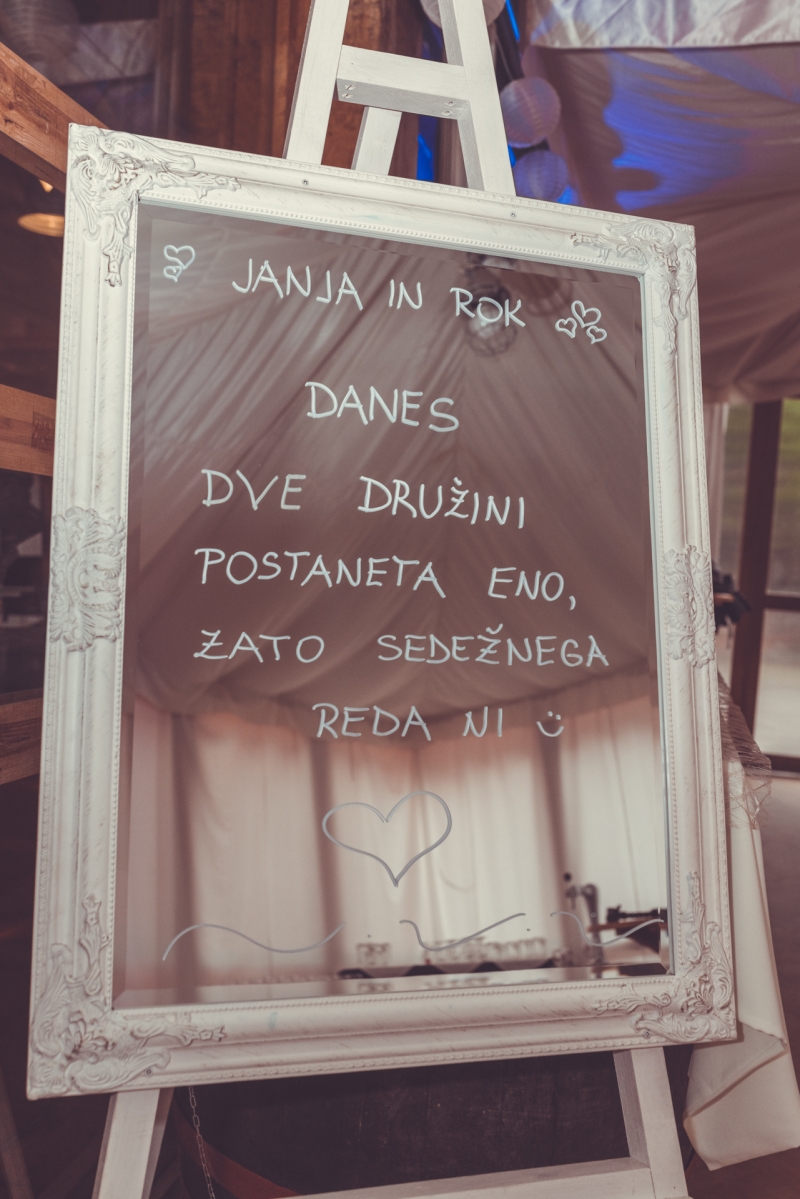 JANJA IN ROK
DANES
DVE DRUŽINI
POSTANETA ENO,
ZATO SEDEŽNEGA
REDA NI